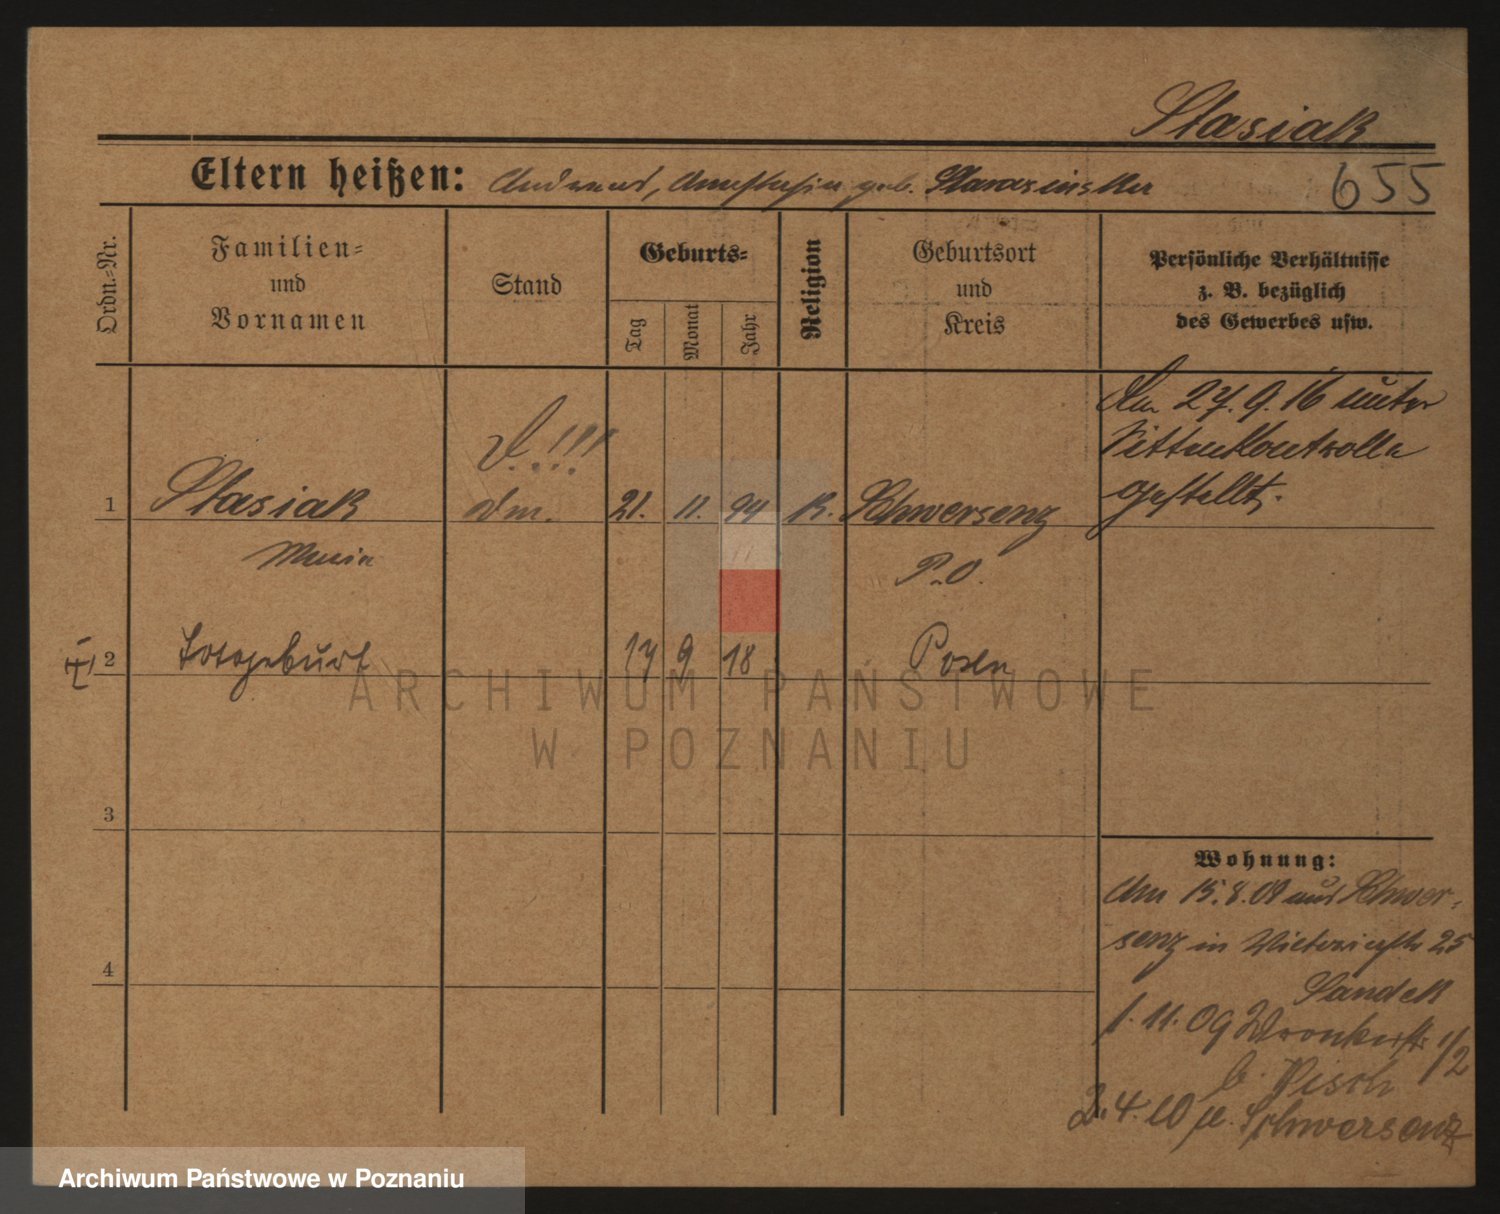 Stasiak
Eltern heißen: Andreas, Anastasia geb.
655
Ordn.-Nr.
Familien-
und
Vornamen
Stand
Geburts-
Tag
Monat
Jahr
Religion
Geburtsort
und
Kreis
Persönliche Verhältnisse
z. B. bezüglich
des Gewerbes usw.
Am 27.9.16 unter
Sittenkontrolle
gestellt.
1 Stasiak 21. 11. 94 K. Schwersenz
Maria P.O.
2 Totgeburt 17 9 18 Posen
3
4
Wohnung:
Am 15.8.09 aus Schwer-
senz in Victoriastr 25
Sandek
1.11.09 Wronkerstr 1/2
b. Pisch
2.4.10 Schwersenz
ARCHIWUM PAŃSTWOWE
W POZNANIU
Archiwum Państwowe w Poznaniu